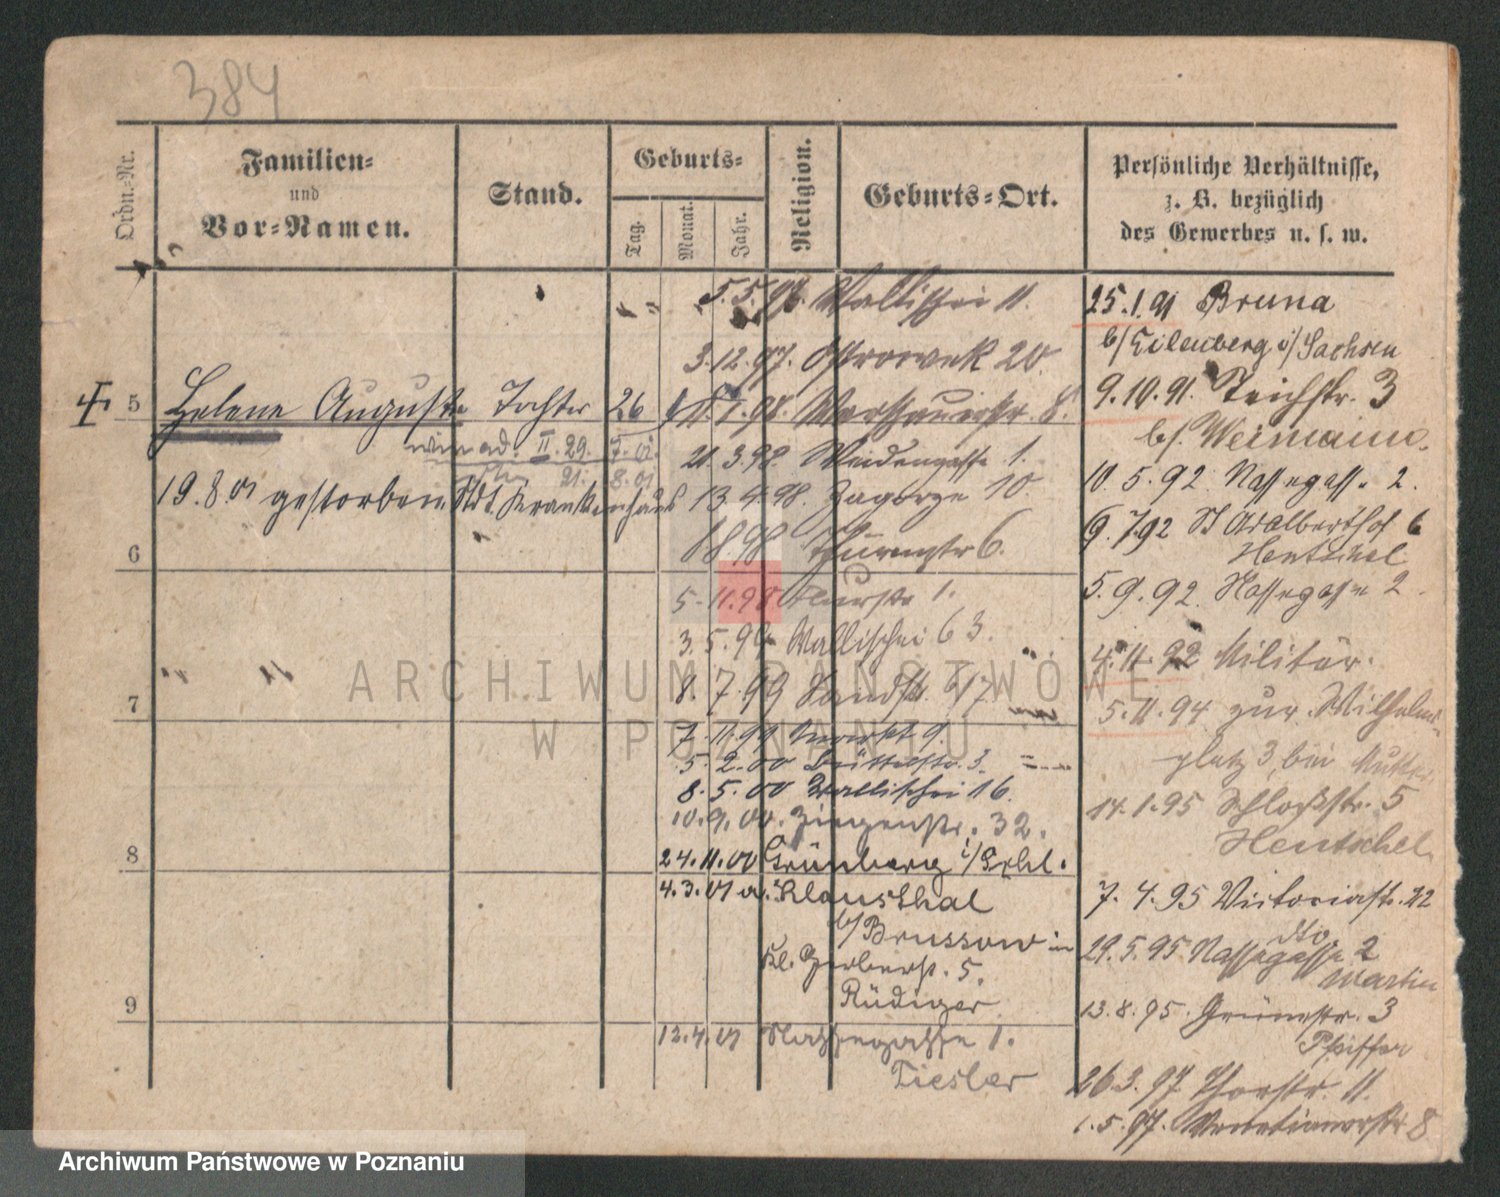 384
Ordn.-Nr.
Familien-
und
Vor-Namen.
Stand.
Geburts-
Tag.
Monat.
Jahr.
Religion.
Geburts-Ort.
Persönliche Verhältnisse,
z. B. bezüglich
des Gewerbes u. s. w.
5.5.96. Wallischei 11.
3.12.97. Ostrowek 20.
5 Helene Auguste Tochter 26
1.98. Warschauerstr. 8.
II. 29. 7.01
21. 8.01
21.3.98. Weidengasse 1.
19.8.01 gestorben Stdt. Krankenhaus
13.4.98. Zagorze 10.
6
98 Thurmstr 6.
5.11.98 Flurstr 1.
3.5.99 Wallischei 63.
8.7.99 Sandstr.
7
7.11.99 9.
5.2.00 Büttelstr. 3.
8.5.00 Wallischei 16.
10.9.00. Ziegenstr. 32.
8
24.11.00 Grünberg i/Schl.
4.3.01 a. Klausthal
b/Brussow in
Kl. Gerberstr. 5.
Rüdiger
9
12.4.01 Nassegasse 1.
Tiesler
25.1.91 Bruna
b/Eilenberg i/Sachsen
9.10.91. Teichstr. 3
b/. Weimann.
10.5.92. Nassegasse 2.
9.7.92 St Adalberthof 6
Hentschel
5.9.92. Nassegasse 2.
4.11.92 Militär.
5.11.94 zur. Wilhelms-
platz 3, bei Mutter
14.1.95 Schlossstr. 5
Hentschel.
7.4.95 Victoriastr. 22
dto
29.5.95 Nassegasse 2
Martin
13.8.95. Grünestr. 3
Pfeiffer
26.3.97. Thorstr. 11.
1.5.97. Venetianerstr 8
ARCHIWUM PAŃSTWOWE
W POZNANIU
Archiwum Państwowe w Poznaniu